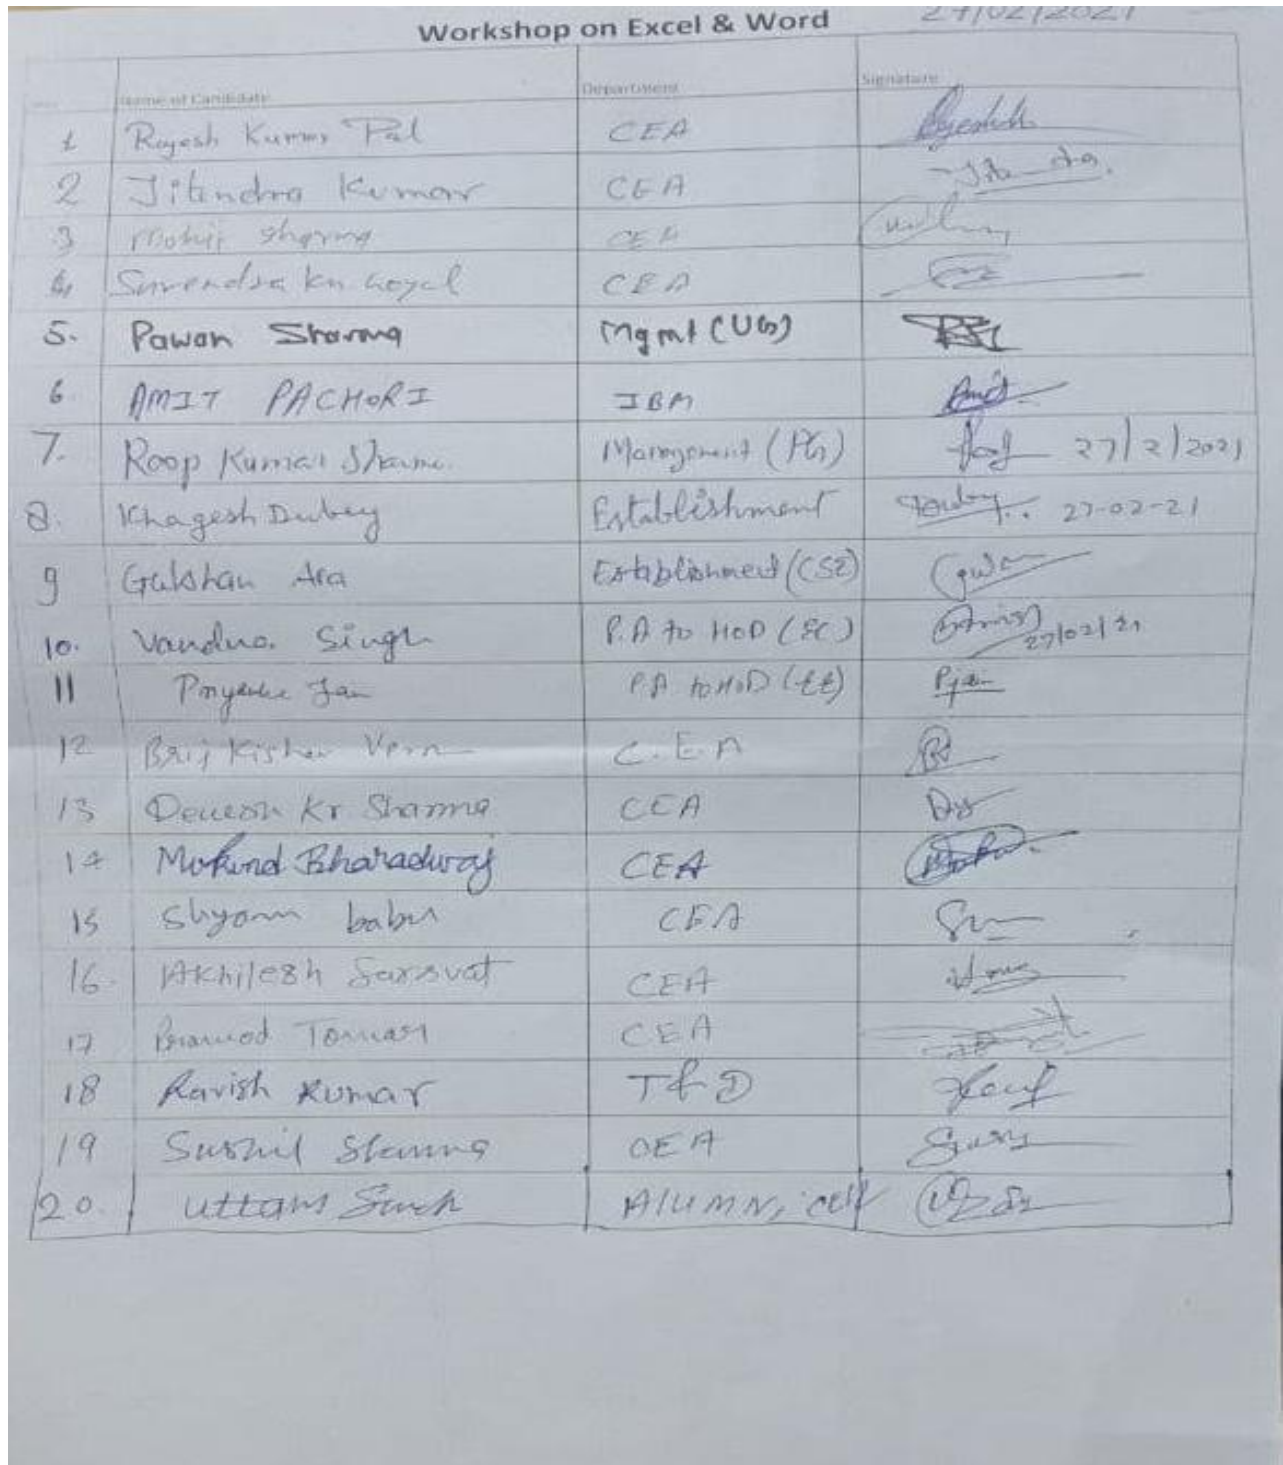 Workshop on Excel & Word 27/02/2021
Name of Candidate Department Signature
1 Rajesh Kumar Pal CEA
2 Jitendra Kumar CEA Jitendra
3 Mohit Sharma CEA
4 Surendra Kr Goyal CEA
5. Pawan Sharma Mgmt (UG)
6 AMIT PACHORI IBM Amit
7. Roop Kumar Sharma Management (PG) Roop 27/2/2021
8. Khagesh Dubey Establishment Dubey 27-02-21
9 Gulshan Ara Establishment (CSE)
10. Vandna Singh P.A to HOD (EC) 27/02/21
11 Priyanka Jain P.A to HOD (EE) Pjain
12 Brij Kishor Verm C.E.A
13 Devesh Kr Sharma CEA
14 Mukund Bharadwaj CEA
15 Shyam babu CEA
16. Akhilesh Sarsvat CEA
17 Pramod Tomar CEA
18 Ravish Kumar T & D
19 Sushil Sharma CEA
20. Uttam Singh Alumni cell